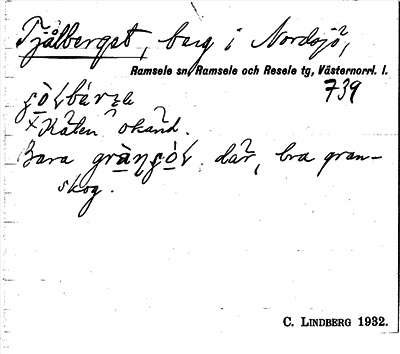 Tjålberget, berg i Nordsjö,
Ramsele sn, Ramsele och Resele tg, Västernorrl. l.
739
× Kåten okänd.
Bara där, bra gran-
skog.
C. LINDBERG 1932.